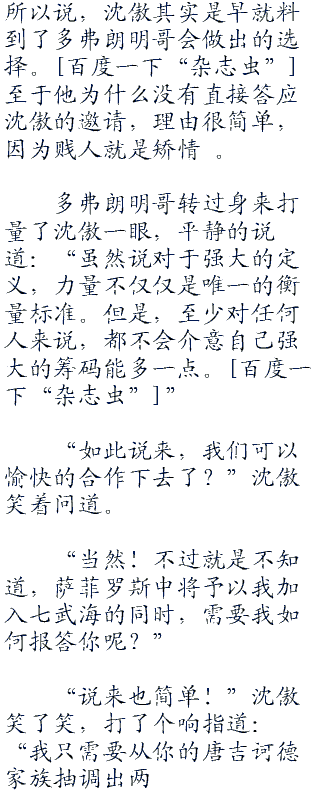 所以说，沈傲其实是早就料
到了多弗朗明哥会做出的选
择。[百度一下“杂志虫”]
至于他为什么没有直接答应
沈傲的邀请，理由很简单，
因为贱人就是矫情 。
多弗朗明哥转过身来打
量了沈傲一眼，平静的说
道：“虽然说对于强大的定
义，力量不仅仅是唯一的衡
量标准。但是，至少对任何
人来说，都不会介意自己强
大的筹码能多一点。[百度一
下“杂志虫”]”
“如此说来，我们可以
愉快的合作下去了？”沈傲
笑着问道。
“当然！不过就是不知
道，萨菲罗斯中将予以我加
入七武海的同时，需要我如
何报答你呢？”
“说来也简单！”沈傲
笑了笑，打了个响指道：
“我只需要从你的唐吉诃德
家族抽调出两